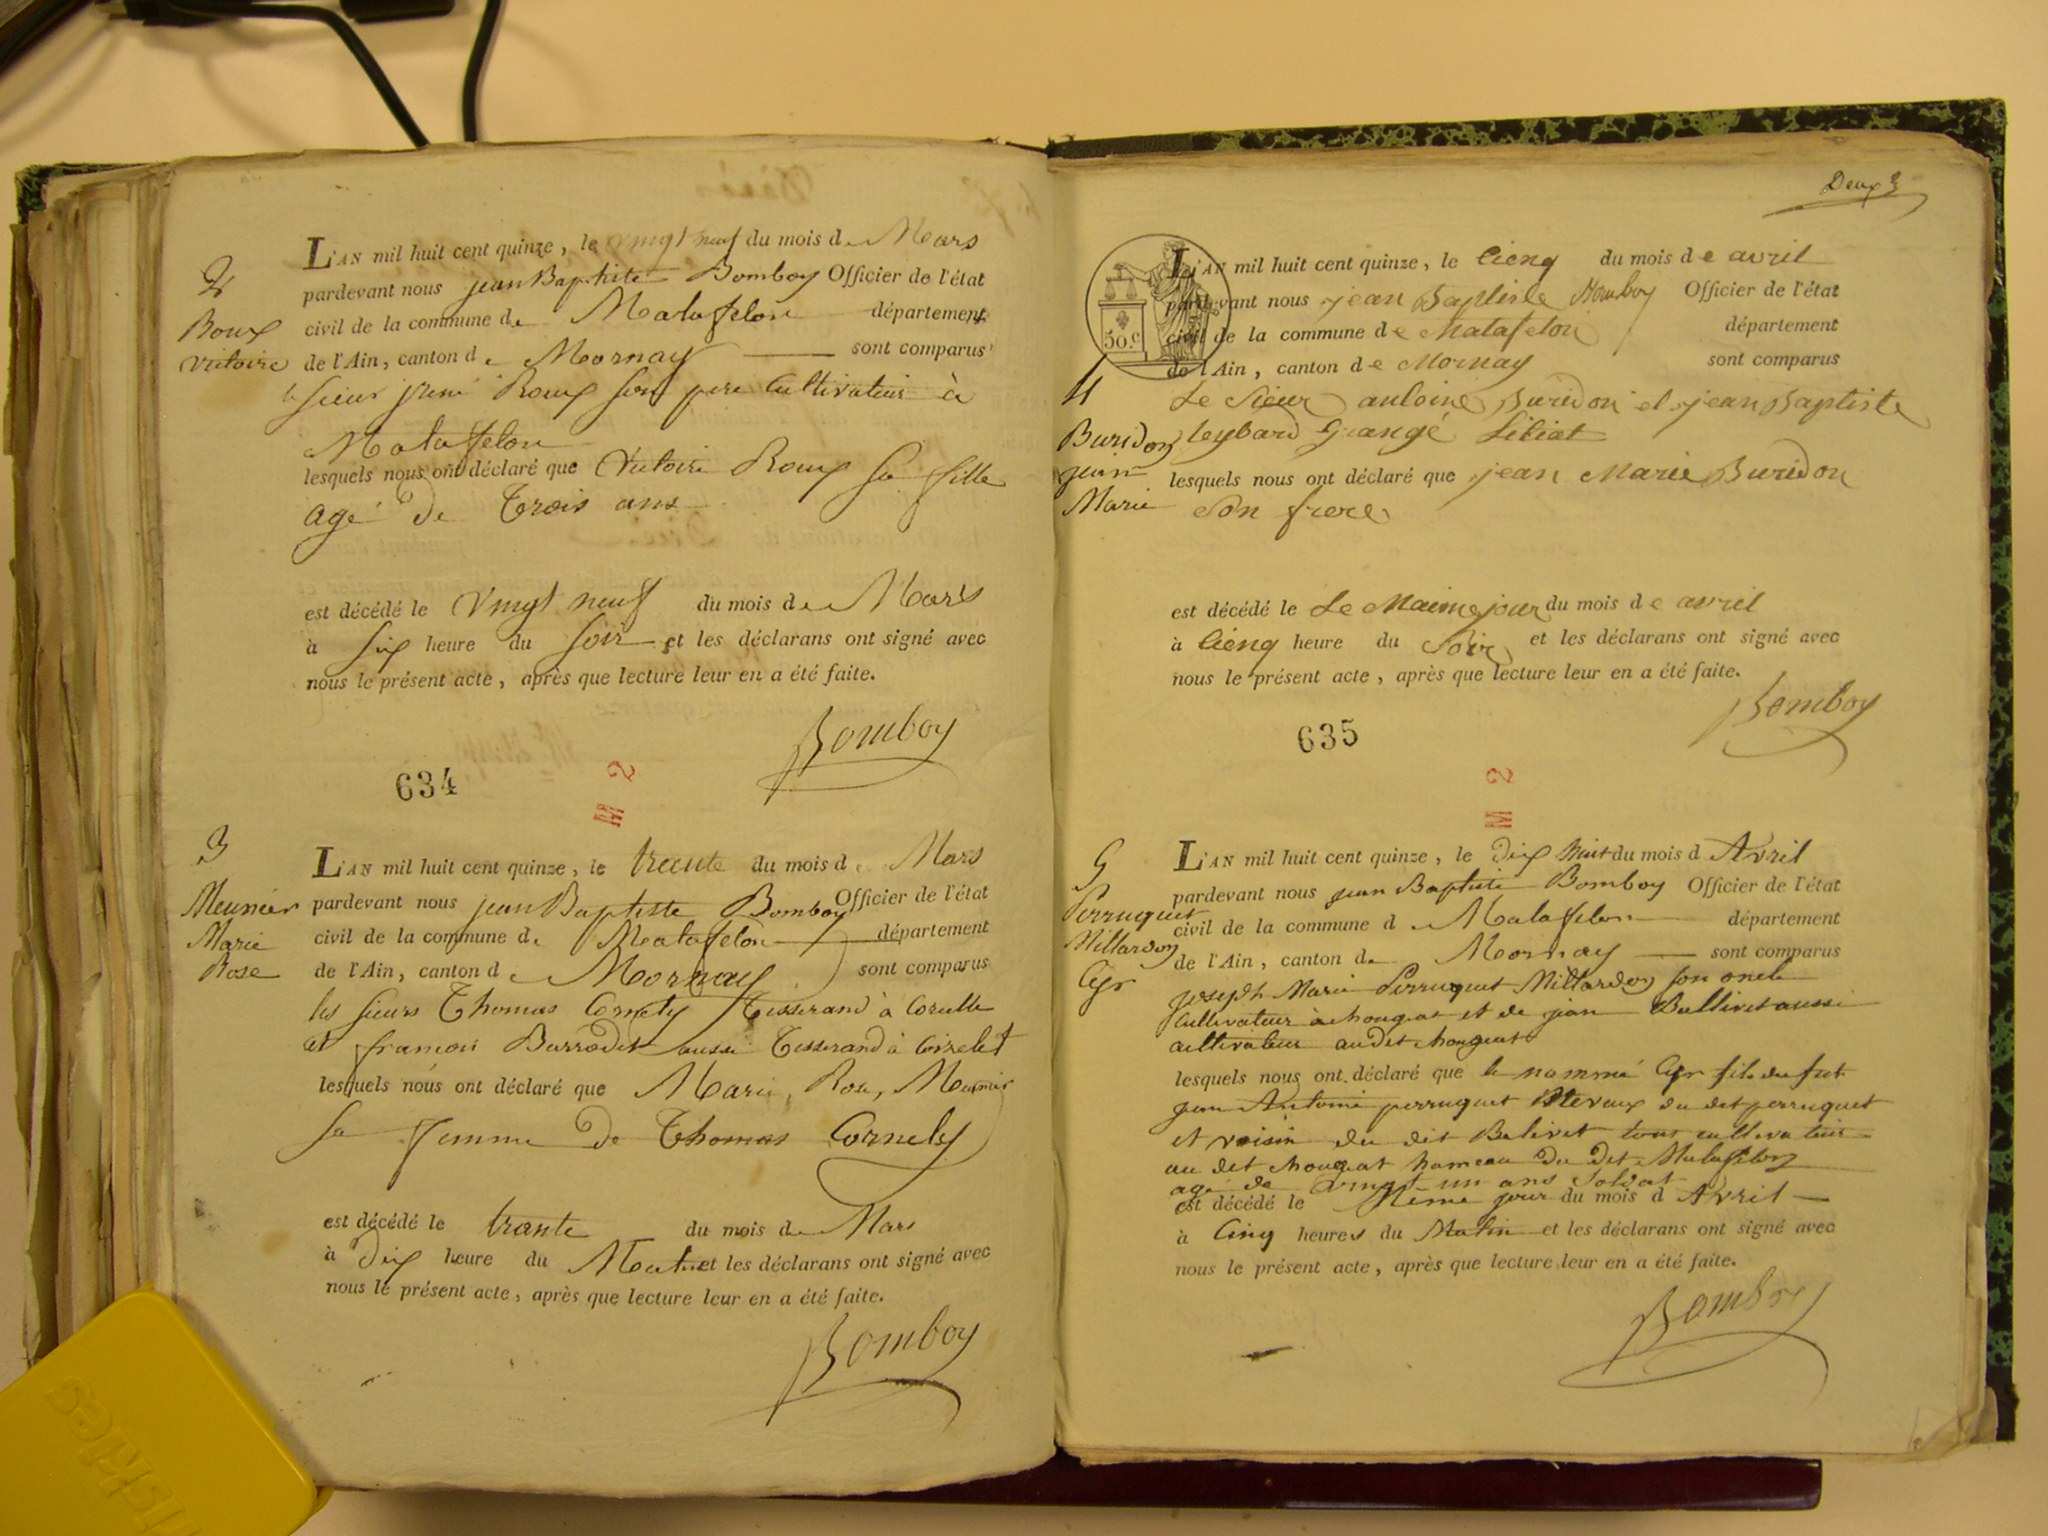 2
Roux
Victoire
L'AN mil huit cent quinze, le vingt neuf du mois de Mars
pardevant nous jean Baptiste Bomboy Officier de l'état
civil de la commune de Matafelon département
de l'Ain, canton de Mornay sont comparus
le sieur Roux son pere Cultivateur à
Matafelon
lesquels nous ont déclaré que Victoire Roux Sa fille
agé de Trois ans
est décédé le Vingt neuf du mois de Mars
à Six heure du soir et les déclarans ont signé avec
nous le présent acte, après que lecture leur en a été faite.
Bomboy
634
M 2
3
Meunier
Marie
Rose
L'AN mil huit cent quinze, le trente du mois de Mars
pardevant nous jean Baptiste Bomboy Officier de l'état
civil de la commune de Matafelon département
de l'Ain, canton de Mornay sont comparus
les sieurs Thomas Cornely Tisserand à
et Tisserand à
lesquels nous ont déclaré que Marie, Rose, Meunier
Sa femme de Thomas Cornely
est décédé le trante du mois de Mars
à Dix heure du Matin et les déclarans ont signé avec
nous le présent acte, après que lecture leur en a été faite.
Bomboy
Deux
50.c
4
Buridon
jean
Marie
L'AN mil huit cent quinze, le cienq du mois de avril
pardevant nous jean Baptiste Bomboy Officier de l'état
civil de la commune de Matafelon département
de l'Ain, canton de Mornay sont comparus
Le Sieur antoine Buridon et jean Baptiste
leybard
lesquels nous ont déclaré que jean Marie Buridon
Son frere
est décédé le Le Maime jour du mois de avril
à cienq heure du Soir et les déclarans ont signé avec
nous le présent acte, après que lecture leur en a été faite.
Bomboy
635
M 2
5
Perruquet
Millardon
Cyr
L'AN mil huit cent quinze, le dix huit du mois d Avril
pardevant nous jean Baptiste Bomboy Officier de l'état
civil de la commune de Matafelon département
de l'Ain, canton de Mornay sont comparus
joseph Marie Perruquet Millardon son oncle
cultivateur à chougeat et de jean Bullivet aussi
cultivateur audit chougeat
lesquels nous ont déclaré que le nommé Cyr fils de
jean Antoine perruquet du dit perruquet
et voisin du dit Belivet tous cultivateur
au dit chougeat hameau du dit Matafelon
agé de vingt un ans soldat
est décédé le Même jour du mois d Avril
à Cinq heures du Matin et les déclarans ont signé avec
nous le présent acte, après que lecture leur en a été faite.
Bomboy